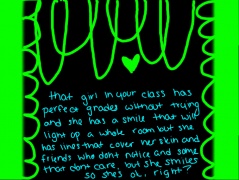 that girl in your class has
perfect grades without trying
and she has a smile that will
light up a whole room but she
has lines that cover her skin and
friends who dont notice and some
that dont care, but she smiles
so she's ok, right?